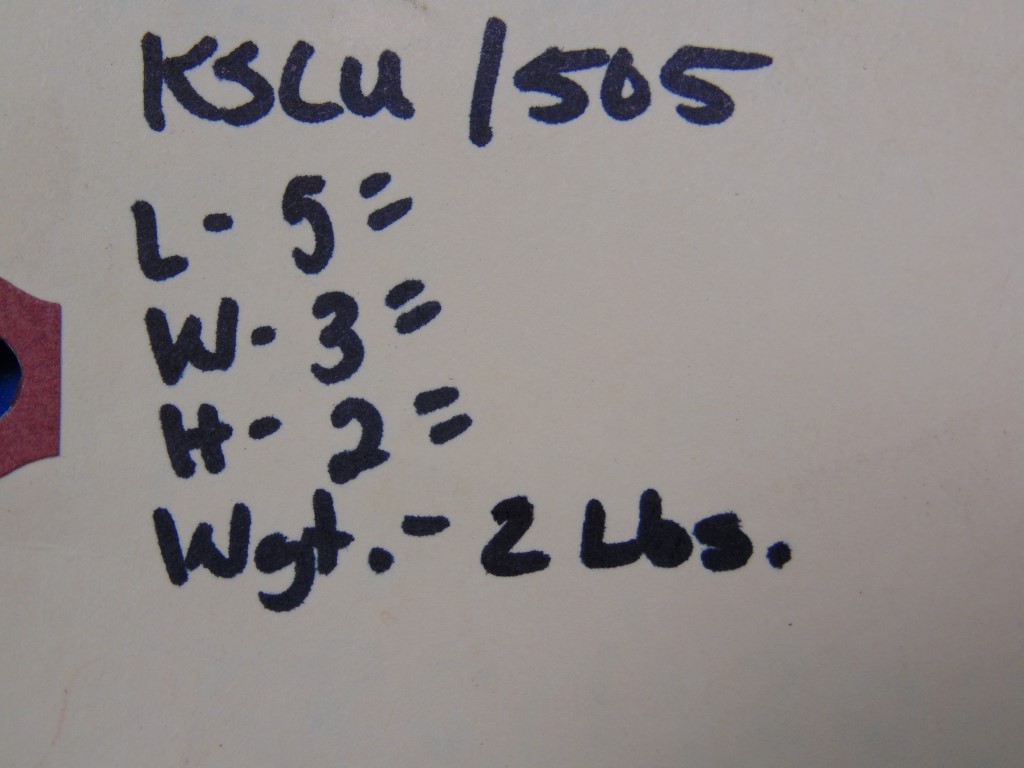 KSLU 1505
L- 5"
W- 3"
H- 2"
Wgt.- 2 Lbs.